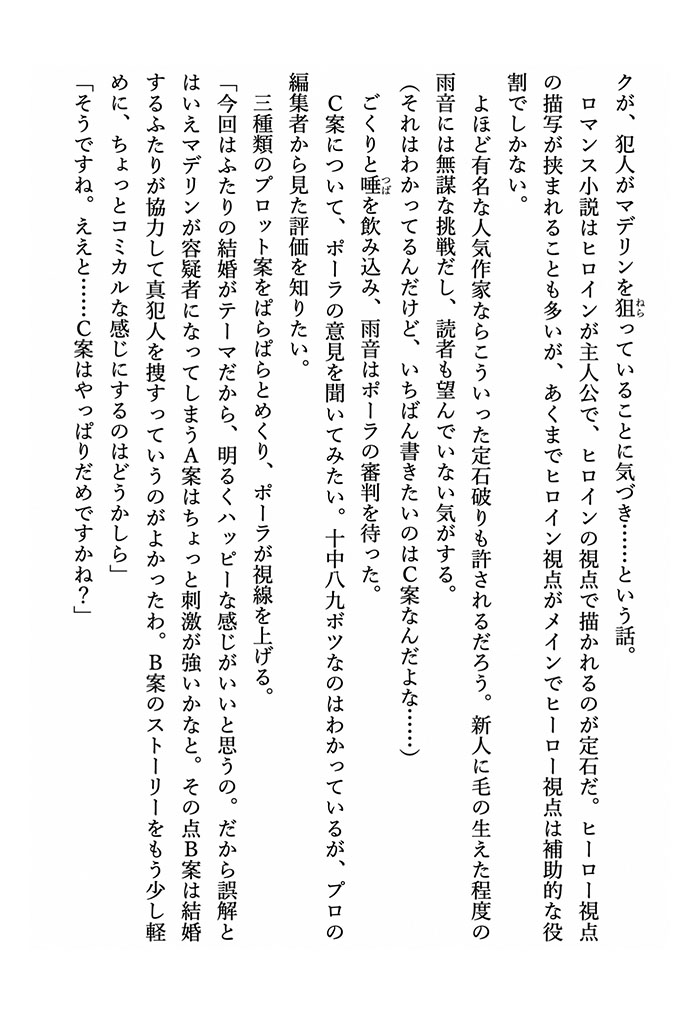 クが、犯人がマデリンを狙っていることに気づき……という話。
　ロマンス小説はヒロインが主人公で、ヒロインの視点で描かれるのが定石だ。ヒーロー視点
の描写が挟まれることも多いが、あくまでヒロイン視点がメインでヒーロー視点は補助的な役
割でしかない。
　よほど有名な人気作家ならこういった定石破りも許されるだろう。新人に毛の生えた程度の
雨音には無謀な挑戦だし、読者も望んでいない気がする。
（それはわかってるんだけど、いちばん書きたいのはＣ案なんだよな……）
　ごくりと唾を飲み込み、雨音はポーラの審判を待った。
　Ｃ案について、ポーラの意見を聞いてみたい。十中八九ボツなのはわかっているが、プロの
編集者から見た評価を知りたい。
　三種類のプロット案をぱらぱらとめくり、ポーラが視線を上げる。
「今回はふたりの結婚がテーマだから、明るくハッピーな感じがいいと思うの。だから誤解と
はいえマデリンが容疑者になってしまうＡ案はちょっと刺激が強いかなと。その点Ｂ案は結婚
するふたりが協力して真犯人を捜すっていうのがよかったわ。Ｂ案のストーリーをもう少し軽
めに、ちょっとコミカルな感じにするのはどうかしら」
「そうですね。ええと……Ｃ案はやっぱりだめですかね？」